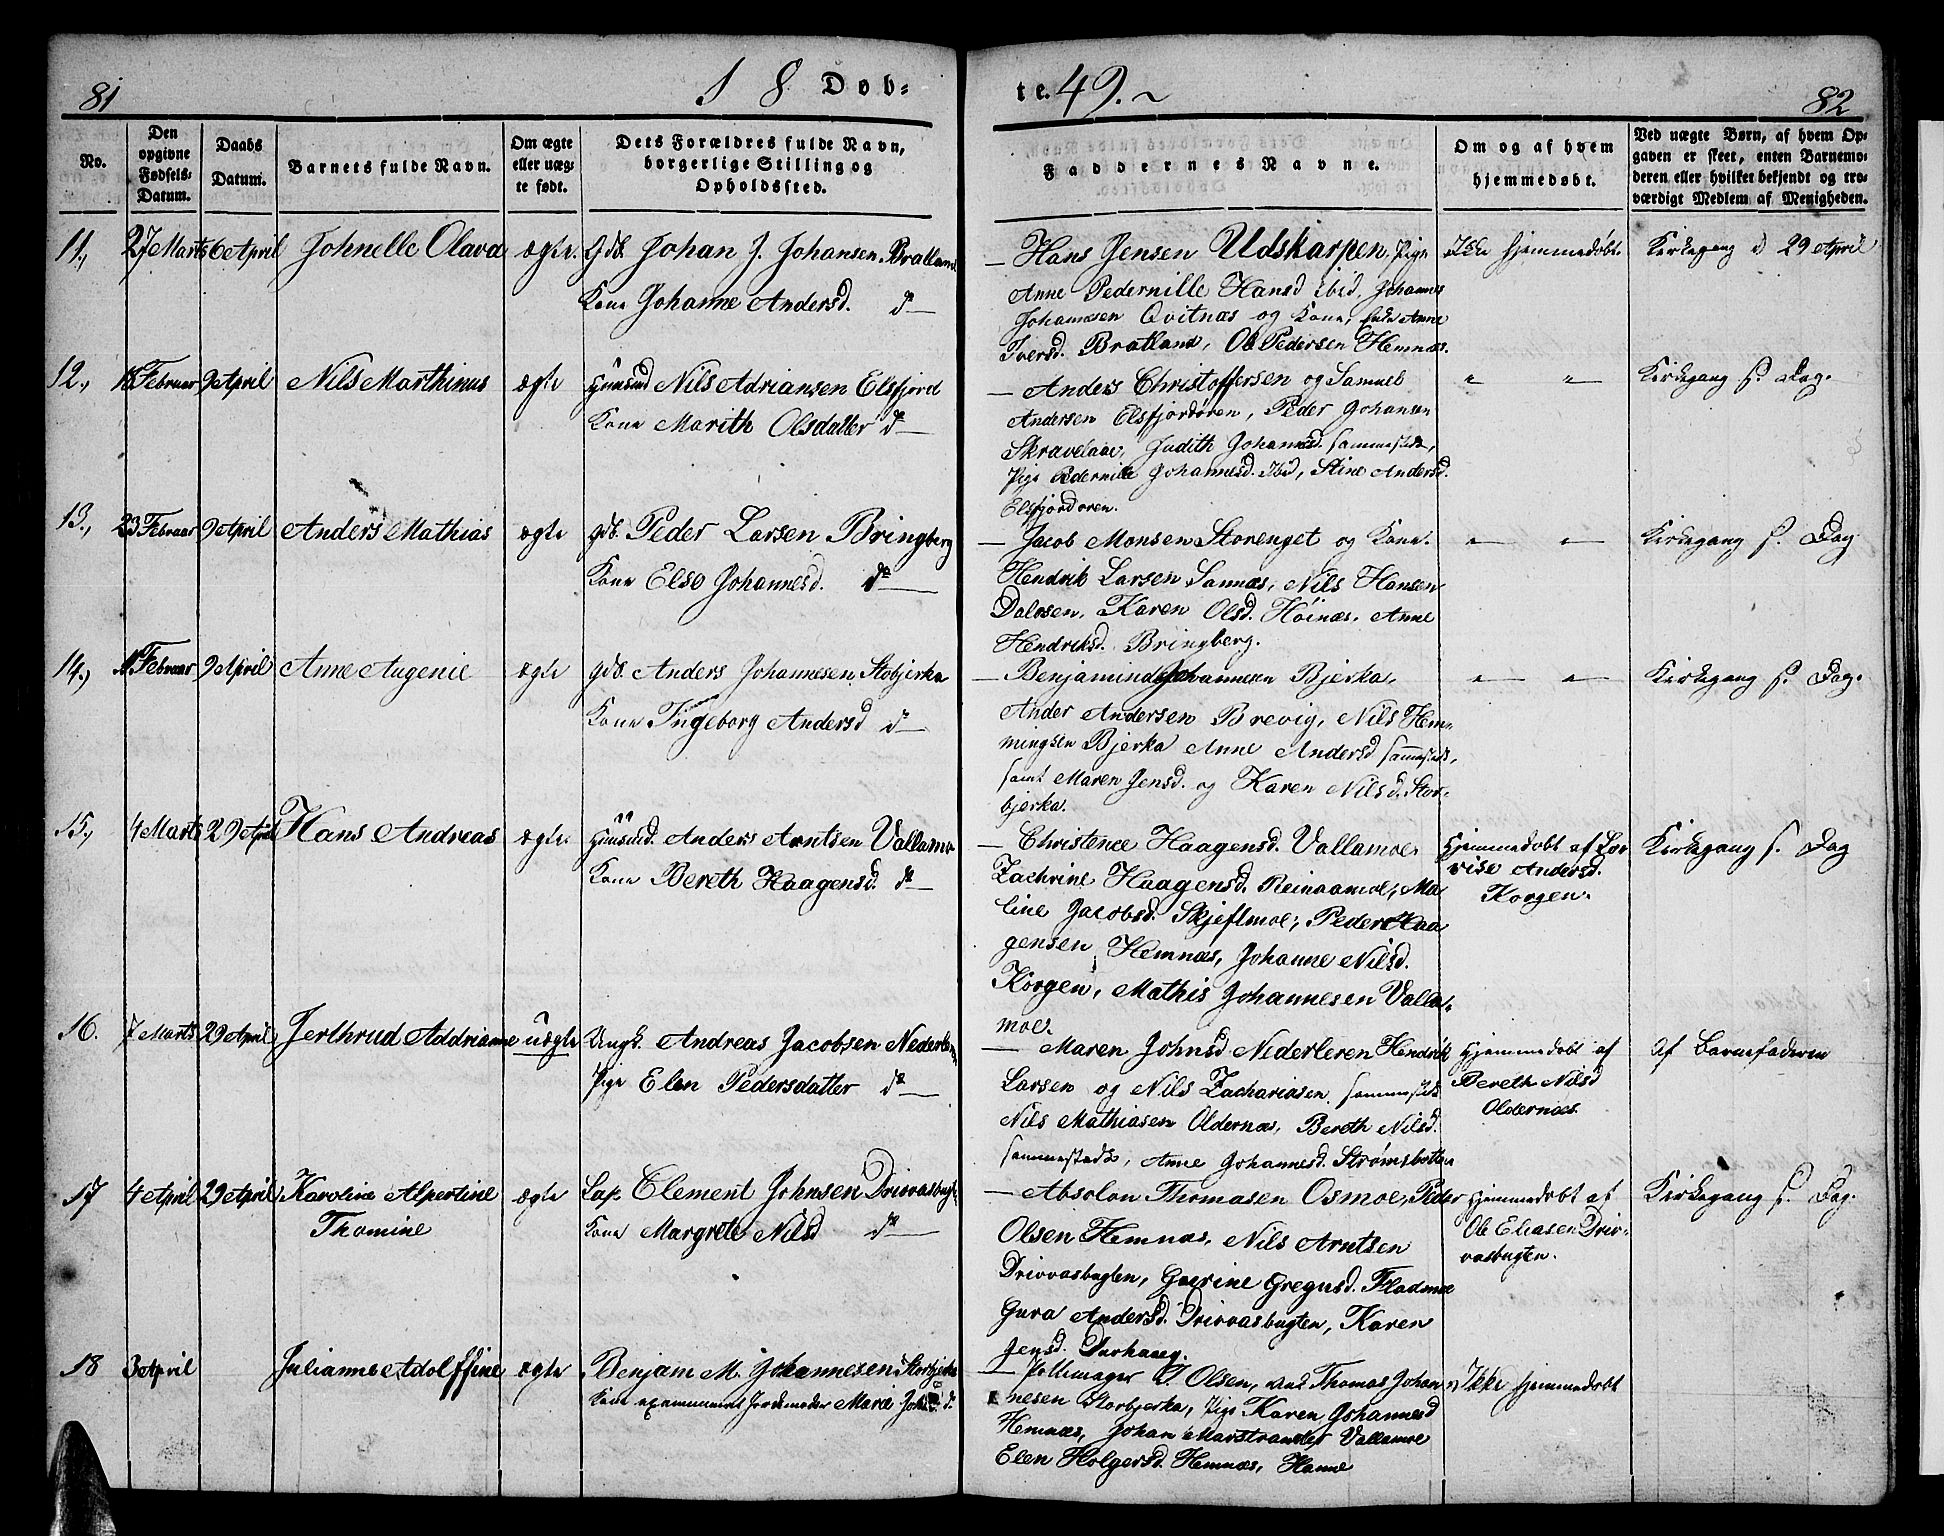 81
1 8 Døb=
No.
Den
opgivne
Fødsels-
Datum.
Daabs
Datum.
Barnets fulde Navn.
Om ægte
eller uæg-
te født.
Dets Forældres fulde Navn,
borgerlige Stilling og
Opholdsfted.
11., 27 Marts 6 April Johnelle Olava ægte. Gdb. Johan J. Johansen Bratland
Kone Johanne Andersd. do
12., Februar 9 April Nils Marthinus ægte Huusmd Nils Adriansen Elsfjord
Kone Marith Olsdatter do
13., 23 Februar 9 April Anders Mathias ægte gdb. Peder Larsen Bringberg
Kone Else Johannesd. do
14., Februar 9 April Anne Augenie ægte gdb. Anders Johannesen Stobjerka
Kone Ingeborg Andersd do
15., 4 Marts 29 April Hans Andreas ægte Huusmd. Anders Arntsen Vallamo
Kone Bereth Haagensd. do
16. 7 Marts 29 April Jerthrud Addrianne uægte Ungk. Andreas Jacobsen Nederleren
Pige Elen Pedersdatter do
17 4 April 29 April Karolina Alpertine ægte Lap. Clement Johnsen Drivvasbugt.
Thomine Kone Margrete Nilsd do
18 3 April Julianne Adolffine ægte Benjam M. Johannesen Storbjerka
Kone examineret Jordemoder Marie do
te. 49. 82
Faddernes Navne.
Om og af hvem
hjemmedøbt.
Ved uægte Børn, af hvem Op-
gaven er skeet, enten Barnemo-
deren eller hvilket bekjendt og tro-
værdigt Medlem af Menigheden.
— Hans Jensen Udskarpen, Pige Ikke hjemmedøbt. Kirkegang d 29 April
Anne Pedernille Hansd ibid, Johannes
Johannesen Qvitnæs og Kone, Anne
Iversd. Bratland, Ole Pedersen Hemnæs.
— Anders Christoffersen og Samuel " " Kirkegang s. Dag.
Andersen Elsfjordøren, Peder Johansen
Skravelaae, Judith Johannesd. sammesteds,
Pige Pedernille Johannesd. Ibid, Stine Andersd.
Elsfjordøren.
— Jacob Monsen Storenget og Kone. " " Kirkegang s. Dag
Hendrik Larsen Sannæs, Nils Hansen
Dalosen, Karen Olsd. Høinæs, Anne
Hendriksd. Bringberg.
— Benjamind Johannesen Bjerka, " " Kirkegang s. Dag.
Ander Andersen Brevig, Nils Hem-
mingsen Bjerka Anne Andersd sammesteds,
samt Maren Jensd. og Karen Nilsd. Stor-
bjerka.
— Christence Haagensd. Vallamoe. Hjemmedøbt af Lov- Kirkegang s. Dag
Zachrine Haagensd. Reinaamoe, Ma- vise Andersd.
line Jacobsd. Skjeflmoe, Peder Haa Korgen.
gensen Hemnæs, Johanne Nilsd.
Korgen, Mathis Johannesen Valla-
moe.
— Maren Johnsd Nederleren Hendrik Hjemmedøbt af Af Barnefaderen
Larsen og Nils Zachariasen sammesteds Bereth Nilsd
Nils Mathiasen Oldernæs, Bereth Nilsd. Oldernæs.
sammesteds, Anne Johannesd. Strømsbotten
— Absolon Thomasen Osmoe, Peder Hjemmedøbt af Kirkegang s. Dag.
Olsen Hemnæs, Nils Arntsen Ole Eliasen Driv-
Drivvasbugten, Gurine Gregusd. Fladmoe vasbugten.
Gura Andersd. Drivvasbugten, Karen
Jensd. Durhaug.
— Pottemager J Olsen, ved Thomas Johan Ikke hjemmedøbt
nesen Storbjerka, Pige Karen Johannesd
Hemnæs, Johan Marstrander Vallamoe
Elen Holgersd. Hemnæs, Hanne